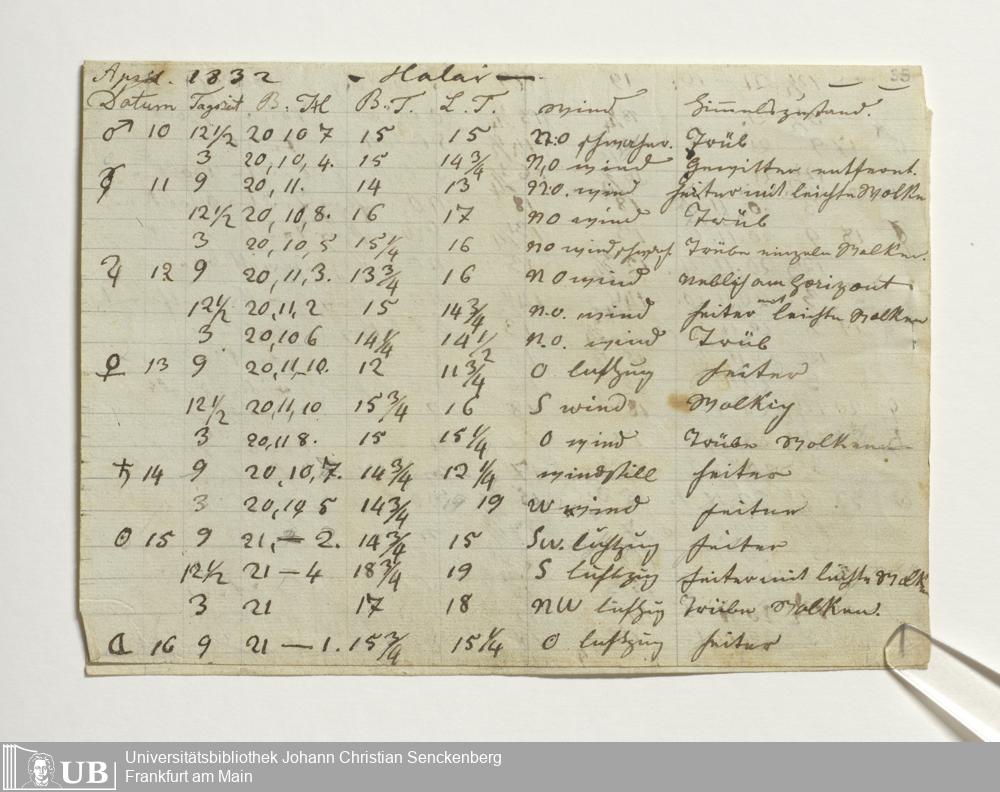 April. 1832 - Halai - 35
Datum Tagszeit B. H B. T. L. T. wind Himmelszustand.
♂ 10 12 1/2 20 10 7 15 15 N.O schwacher. Trüb
3 20, 10, 4. 15 14 3/4 N,O wind Gewitter entfernt.
☿ 11 9 20, 11. 14 13 N.O. wind heiter mit leichte Wolke
12 1/2 20, 10, 8. 16 17 NO wind Trüb
3 20, 10, 5 15 1/4 16 NO wind schwach Trübe einzeln Wolken.
♃ 12 9 20, 11, 3. 13 3/4 16 NO wind Neblich am Horizont
12 1/2 20, 11, 2 15 14 3/4 N.O. wind heiter mit leichte Wolken
3 20, 10 6 14 1/4 14 1/2 N.O. wind Trüb
♀ 13 9 20, 11, 10. 12 11 3/4 O luftzug heiter
12 1/2 20, 11, 10 15 3/4 16 S wind Wolkig
3 20, 11 8. 15 15 1/4 O wind Trübe Wolken
♄ 14 9 20, 10, 7. 14 3/4 12 1/4 windstill heiter
3 20, 10 5 14 3/4 19 W wind heiter
☉ 15 9 21, — 2. 14 3/4 15 SW. luftzug heiter
12 1/2 21 — 4 18 3/4 19 S luftzug heiter mit leichte Wolk
3 21 17 18 NW luftzug Trübe Wolken.
☾ 16 9 21 — 1. 15 3/4 15 1/4 O luftzug heiter
UB Universitätsbibliothek Johann Christian Senckenberg
Frankfurt am Main